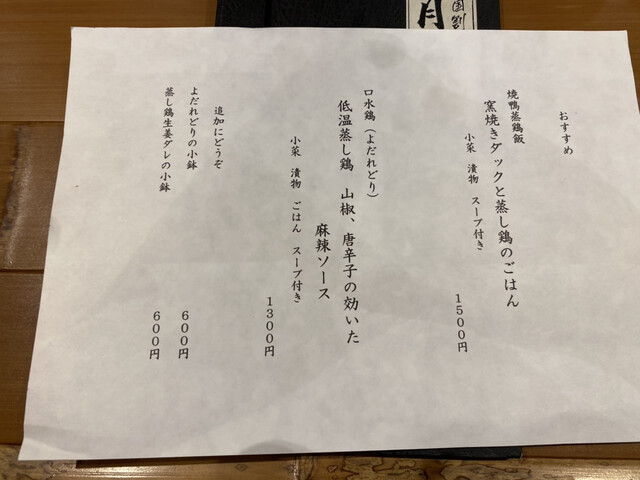 おすすめ
焼鴨蒸鶏飯
窯焼きダックと蒸し鶏のごはん
小菜　漬物　スープ付き
1500円
口水鶏（よだれどり）
低温蒸し鶏　山椒、唐辛子の効いた
麻辣ソース
小菜　漬物　ごはん　スープ付き
1300円
追加にどうぞ
よだれどりの小鉢
600円
蒸し鶏生姜ダレの小鉢
600円
月